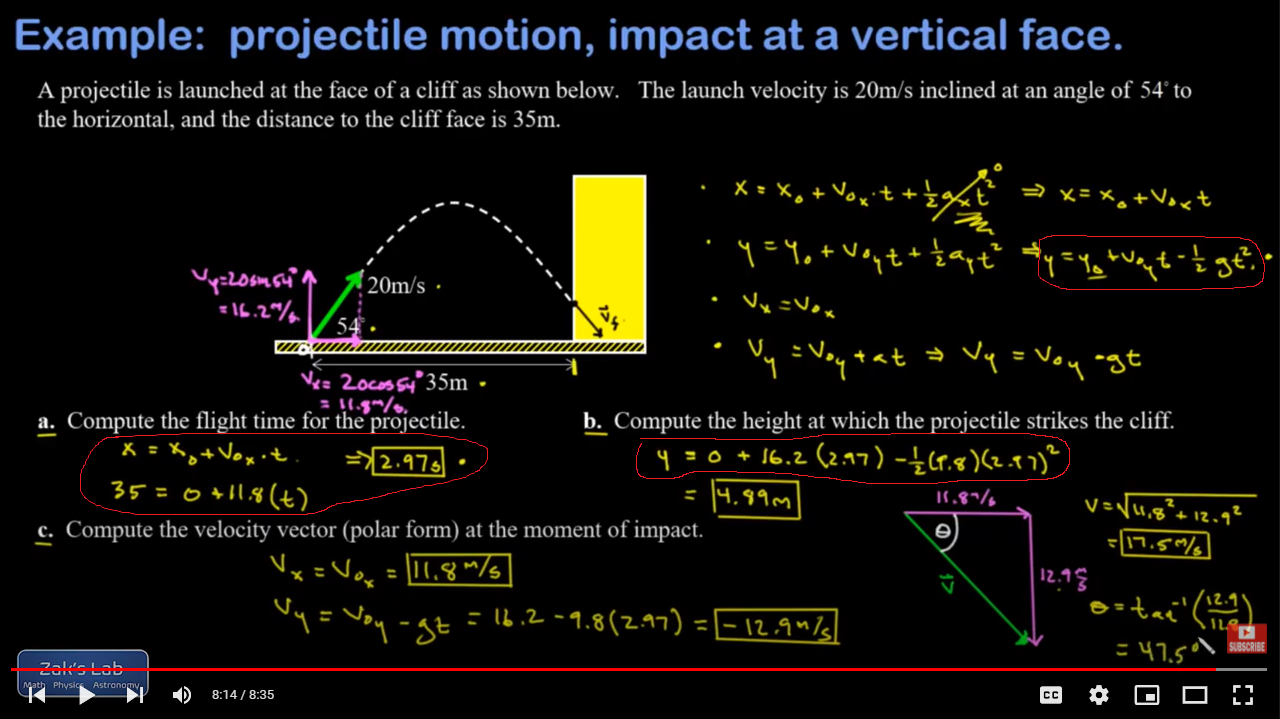 Example: projectile motion, impact at a vertical face.
A projectile is launched at the face of a cliff as shown below. The launch velocity is 20m/s inclined at an angle of 54° to
the horizontal, and the distance to the cliff face is 35m.
x = x₀ + v₀ₓ·t + ½aₓt² ⁰ ⇒ x = x₀ + v₀ₓt
y = y₀ + v₀yt + ½ayt² ⇒ y = y₀ + v₀yt - ½gt².
vₓ = v₀ₓ
vy = v₀y + at ⇒ vy = v₀y - gt
vy = 20sin54°
= 16.2m/s.
20m/s
54°
v⃗f
0
vₓ = 20cos54°
= 11.8m/s.
35m
a. Compute the flight time for the projectile.
x = x₀ + v₀ₓ·t ⇒ 2.97s
35 = 0 + 11.8(t)
b. Compute the height at which the projectile strikes the cliff.
y = 0 + 16.2(2.97) - ½(9.8)(2.97)²
= 4.89m
c. Compute the velocity vector (polar form) at the moment of impact.
vₓ = v₀ₓ = 11.8m/s
vy = v₀y - gt = 16.2 - 9.8(2.97) = -12.9m/s
11.8m/s
θ
v⃗
12.9m/s
v = √11.8² + 12.9²
= 17.5m/s
θ = tan⁻¹(12.9/
= 47.5°
SUBSCRIBE
Zak's Lab
Math Physics Astronomy
8:14 / 8:35
CC